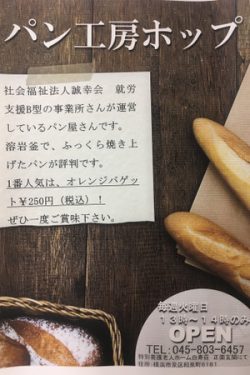 パン工房ホップ
社会福祉法人誠幸会 就労
支援B型の事業所さんが運営
しているパン屋さんです。
溶岩釜で、ふっくら焼き上
げたパンが評判です。
1番人気は、オレンジバゲッ
ト¥250円(税込)!
ぜひ一度ご賞味下さい。
毎週火曜日
13時~14時のみ
OPEN
TEL:045-803-6457
特別養護老人ホーム白寿荘 正面玄関にて
住所:横浜市泉区和泉町6181